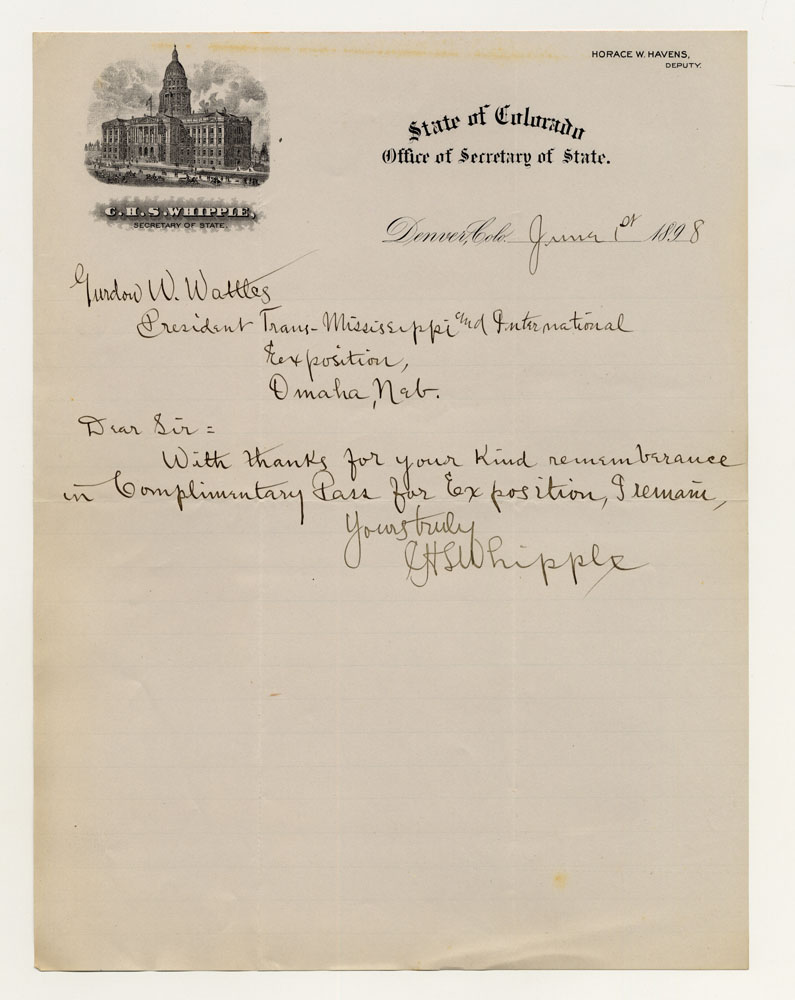 HORACE W. HAVENS,
DEPUTY.
State of Colorado
Office of Secretary of State.
C.H.S.WHIPPLE,
SECRETARY OF STATE.
Denver, Colo. June 1st 1898
Gurdon W. Wattles
President Trans-Mississippi and International
Exposition,
Omaha, Neb.
Dear Sir =
With thanks for your kind rememberance
in Complimentary Pass for Exposition, I remain,
Yours truly
CHSWhipple